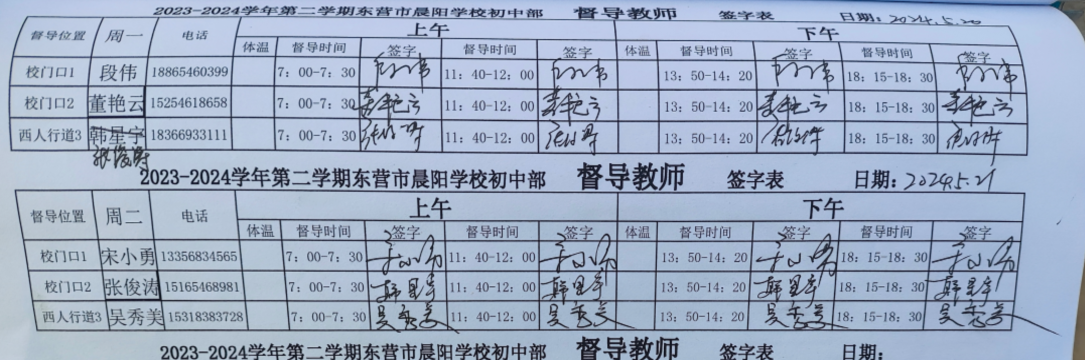 2023-2024学年第二学期东营市晨阳学校初中部 督导教师 签字表 日期：2024.5.20
督导位置 周一 电话 上午 下午
体温 督导时间 签字 督导时间 签字 体温 督导时间 签字 督导时间 签字
校门口1 段伟 18865460399 7：00-7：30 段伟 11：40-12：00 段伟 13：50-14：20 段伟 18：15-18：30 段伟
校门口2 董艳云 15254618658 7：00-7：30 董艳云 11：40-12：00 董艳云 13：50-14：20 董艳云 18：15-18：30 董艳云
西人行道3 韩星宇 18366933111 7：00-7：30 11：40-12：00 13：50-14：20 18：15-18：30
张俊涛
2023-2024学年第二学期东营市晨阳学校初中部 督导教师 签字表 日期：2024.5.21
督导位置 周二 电话 上午 下午
体温 督导时间 签字 督导时间 签字 体温 督导时间 签字 督导时间 签字
校门口1 宋小勇 13356834565 7：00-7：30 宋小勇 11：40-12：00 宋小勇 13：50-14：20 宋小勇 18：15-18：30 宋小勇
校门口2 张俊涛 15165468981 7：00-7：30 韩星宇 11：40-12：00 韩星宇 13：50-14：20 韩星宇 18：15-18：30 韩星宇
西人行道3 吴秀美 15318383728 7：00-7：30 吴秀美 11：40-12：00 吴秀美 13：50-14：20 吴秀美 18：15-18：30 吴秀美
2023-2024学年第二学期东营市晨阳学校初中部 督导教师 签字表 日期：